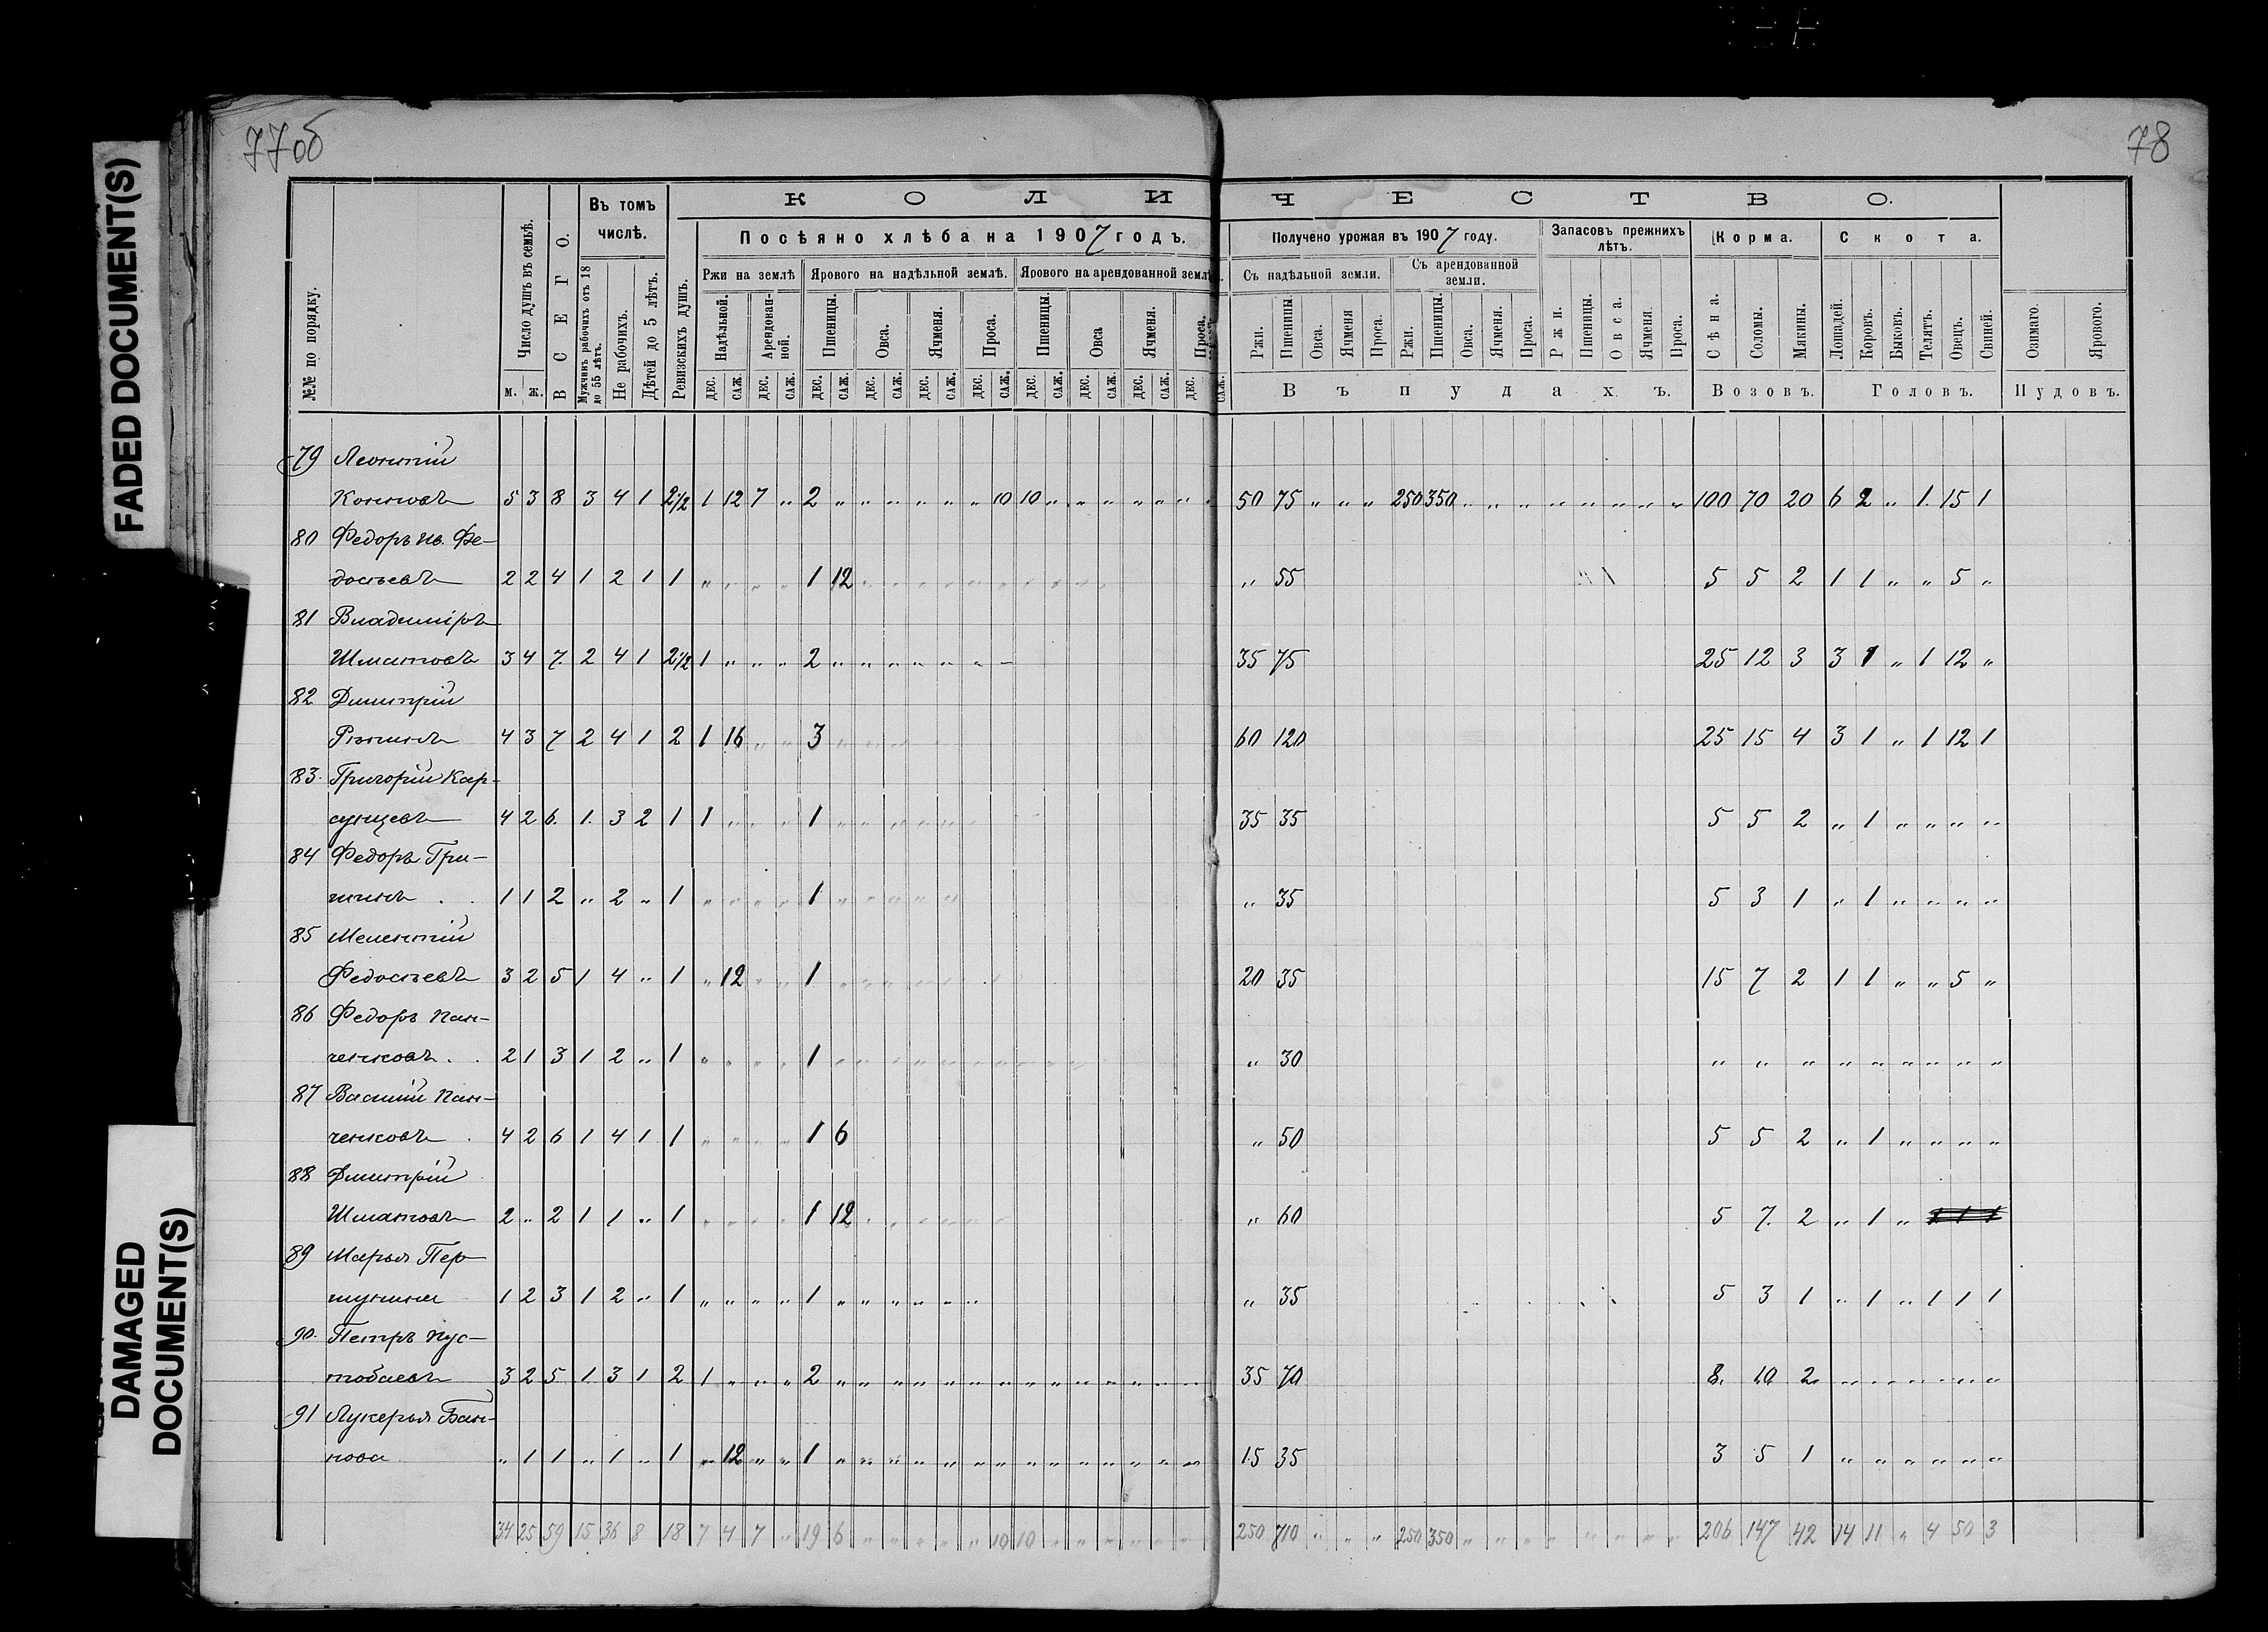 77об
78
К О Л И Ч Е С Т В О.
№№ по порядку.
Число душъ въ семьѣ.
м. ж.
В С Е Г О.
Въ томъ числѣ.
Мужчинъ рабочихъ отъ 18 до 55 лѣтъ.
Не рабочихъ.
Дѣтей до 5 лѣтъ.
Ревизскихъ душъ.
Посѣяно хлѣба на 1907 годъ.
Ржи на землѣ
Надѣльной.
Арендованной.
Ярового на надѣльной землѣ.
Пшеницы. Овса. Ячменя. Проса.
Ярового на арендованной землѣ.
Пшеницы. Овса Ячменя. Проса.
ДЕС. САЖ. ДЕС. САЖ. ДЕС. САЖ. ДЕС. САЖ. ДЕС. САЖ. ДЕС. САЖ. ДЕС. САЖ. ДЕС. САЖ. ДЕС. САЖ. ДЕС. САЖ.
Получено урожая въ 1907 году.
Съ надѣльной земли.
Ржи. Пшеницы. Овса. Ячменя Проса.
Съ арендованной земли.
Ржи. Пшеницы. Овса. Ячменя. Проса.
Запасовъ прежнихъ лѣтъ.
Ржи. Пшеницы. Овса. Ячменя. Проса.
Въ пудахъ.
Корма.
Сѣна. Соломы. Мякины.
Возовъ.
Скота.
Лошадей. Коровъ. Быковъ. Телятъ. Овецъ. Свиней.
Головъ.
Озимаго. Ярового.
Пудовъ.
79 Леонтій
Конновъ 5 3 8 3 4 1 2½ 1 12 7 „ 2 „ „ „ „ „ „ 10 10 „ „ „ „ „ „ „ 50 75 „ „ „ 250 350 „ „ „ „ „ „ „ „ 100 70 20 6 2 „ 1 15 1
80 Федоръ Ив. Фе-
досѣевъ 2 2 4 1 2 1 1 „ „ „ „ 1 12 „ 55 5 5 2 1 1 „ „ 5 „
81 Владиміръ
Шматовъ 3 4 7 2 4 1 2½ 1 „ „ „ 2 „ „ „ „ „ „ „ 35 75 25 12 3 3 1 „ 1 12 „
82 Дмитрій
4 3 7 2 4 1 2 1 16 „ „ 3 60 120 25 15 4 3 1 „ 1 12 1
83. Григорій Кар-
сунцевъ 4 2 6 1 3 2 1 1 „ „ „ 1 35 35 5 5 2 „ 1 „ „ „ „
84 Федоръ Гри-
шинъ 1 1 2 „ 2 „ 1 „ „ „ „ 1 „ 35 5 3 1 „ 1 „ „ „ „
85 Мелентій
Федосѣевъ 3 2 5 1 4 „ 1 „ 12 „ „ 1 20 35 15 7 2 1 1 „ „ 5 „
86 Федоръ Пан-
ченковъ 2 1 3 1 2 „ 1 „ „ „ „ 1 „ 30 „ „ „ „ „ „ „ „ „
87 Василій Пан-
ченковъ 4 2 6 1 4 1 1 „ „ „ „ 1 6 „ 50 5 5 2 „ 1 „ „ „ „
88 Дмитрій
Шматовъ 2 „ 2 1 1 „ 1 „ „ „ „ 1 12 „ 60 5 7 2 „ 1 „ 1 1 1
89 Марья Пер
шунина 1 2 3 1 2 „ 1 „ „ „ „ 1 „ „ „ „ „ „ „ 35 5 3 1 „ 1 „ 1 1 1
90. Петръ Пус-
тобаевъ 3 2 5 1 3 1 2 1 „ „ „ 2 „ „ „ „ „ „ „ „ „ „ „ „ „ „ „ 35 70 8 10 2 „ „ „ „ „ „
91 Лукерья Бан-
нова „ 1 1 „ 1 „ 1 „ 12 „ „ 1 „ „ „ „ „ „ „ „ „ „ „ „ „ „ „ 15 35 3 5 1 „ „ „ „ „ „
34 25 59 15 36 8 18 7 4 7 „ 19 6 „ „ „ „ „ 10 10 „ „ „ „ „ „ „ 250 710 „ „ „ 250 350 „ „ „ „ „ „ „ „ 206 147 42 14 11 „ 4 50 3
FADED DOCUMENT(S)
DAMAGED
DOCUMENT(S)